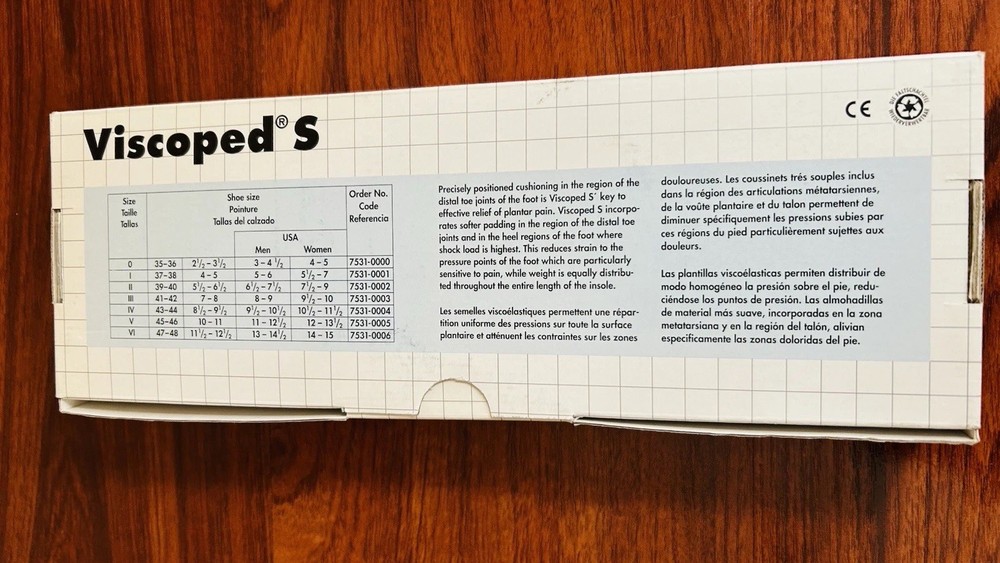 Viscoped® S
CE
DIE FALTSCHACHTEL
WIEDERVERWERTBAR
Size Shoe size Order No.
Taille Pointure Code
Tallas Tallas del calzado Referencia
USA
Men Women
0 35-36 2½-3½ 3-4 ½ 4-5 7531-0000
I 37-38 4-5 5-6 5½-7 7531-0001
II 39-40 5½-6½ 6½-7½ 7½-9 7531-0002
III 41-42 7-8 8-9 9½-10 7531-0003
IV 43-44 8½-9½ 9½-10½ 10½-11½ 7531-0004
V 45-46 10-11 11-12½ 12-13½ 7531-0005
VI 47-48 11½-12½ 13-14½ 14-15 7531-0006
Precisely positioned cushioning in the region of the
distal toe joints of the foot is Viscoped S' key to
effective relief of plantar pain. Viscoped S incorpo-
rates softer padding in the region of the distal toe
joints and in the heel regions of the foot where
shock load is highest. This reduces strain to the
pressure points of the foot which are particularly
sensitive to pain, while weight is equally distribu-
ted throughout the entire length of the insole.
Les semelles viscoélastiques permettent une répar-
tition uniforme des pressions sur toute la surface
plantaire et atténuent les contraintes sur les zones
douloureuses. Les coussinets trés souples inclus
dans la région des articulations métatarsiennes,
de la voûte plantaire et du talon permettent de
diminuer spécifiquement les pressions subies par
ces régions du pied particulièrement sujettes aux
douleurs.
Las plantillas viscoélasticas permiten distribuir de
modo homogéneo la presión sobre el pie, redu-
ciéndose los puntos de presión. Las almohadillas
de material más suave, incorporadas en la zona
metatarsiana y en la región del talón, alivian
especificamente las zonas doloridas del pie.